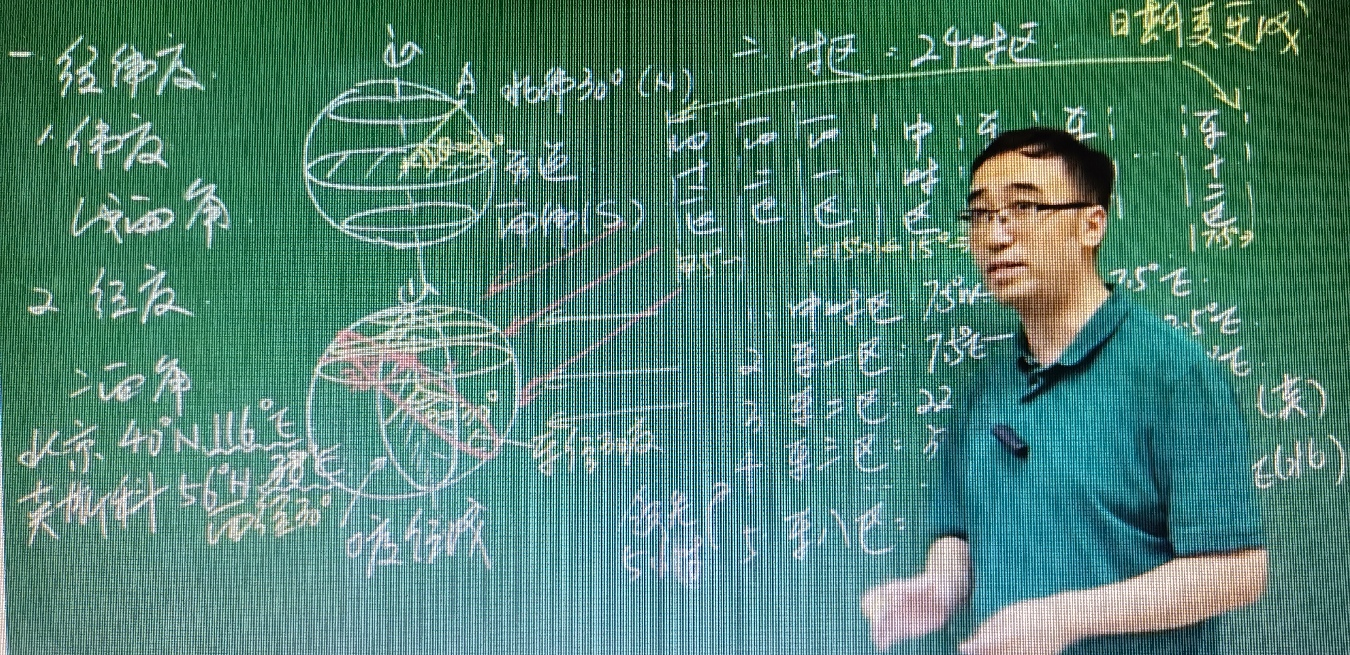 一 经纬度.
1. 纬度
线面角.
2. 经度.
二面角
北京 40°N 116°E
莫斯科 56°N
西经30°
A
北纬30°(N)
赤道
南纬(S)
东经30度
0度经线
二 时区: 24时区.
日期变更线
西十二区
西二区
西一区
中时区
东
东
东十二区
7.5°
←15°→←15°→
7.5°
1. 中时区: 7.5°W— 7.5°E.
2 东一区: 7.5°E— 22.5°E.
3 东二区: 22
4 东三区:
(莫)
5 东八区:
5小时